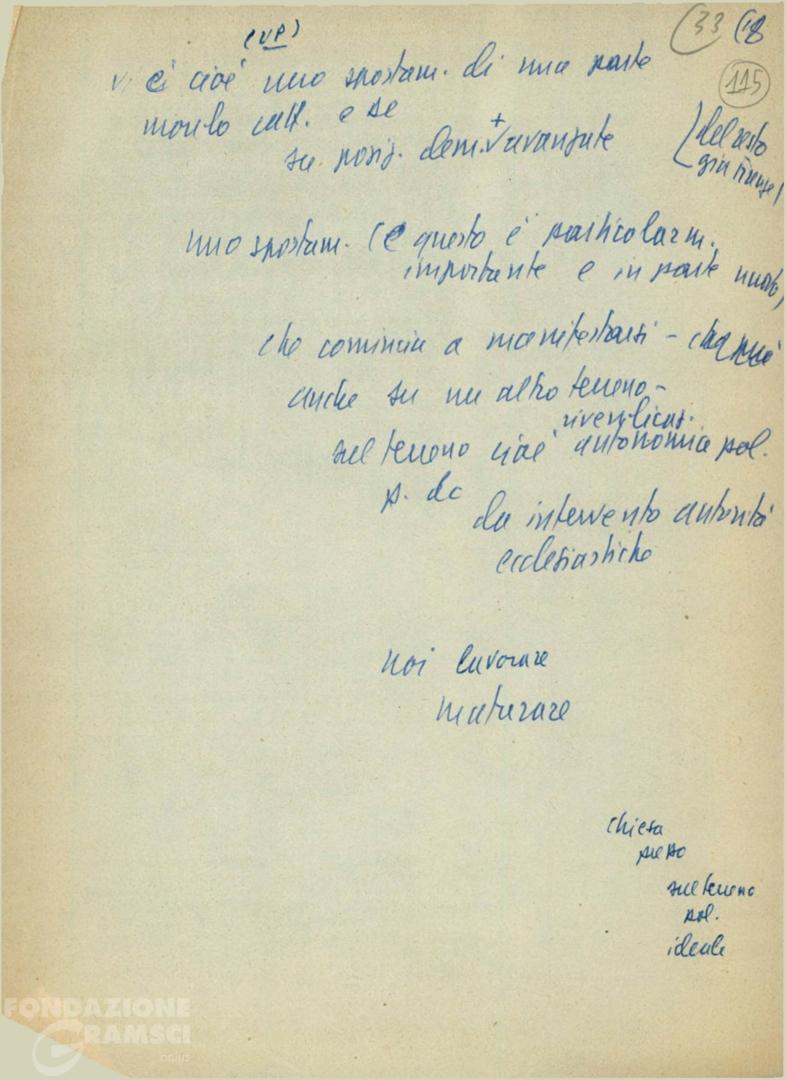 (33 (18
115
(VP)
v. è cioè uno spostam. di una parte
mondo catt. e se
su posiz. dem. + avanzate
(del resto
già Firenze)
uno spostam. (e questo è particolarm.
importante e in parte nuovo)
che comincia a manifestarsi -
anche su un altro terreno -
rivendicaz.
sul terreno cioè autonomia pol.
p. dc
da intervento autorità
ecclesiastiche
noi lavorare
maturare
chiesa
sul terreno
pol.
ideale
FONDAZIONE
GRAMSCI
onlus